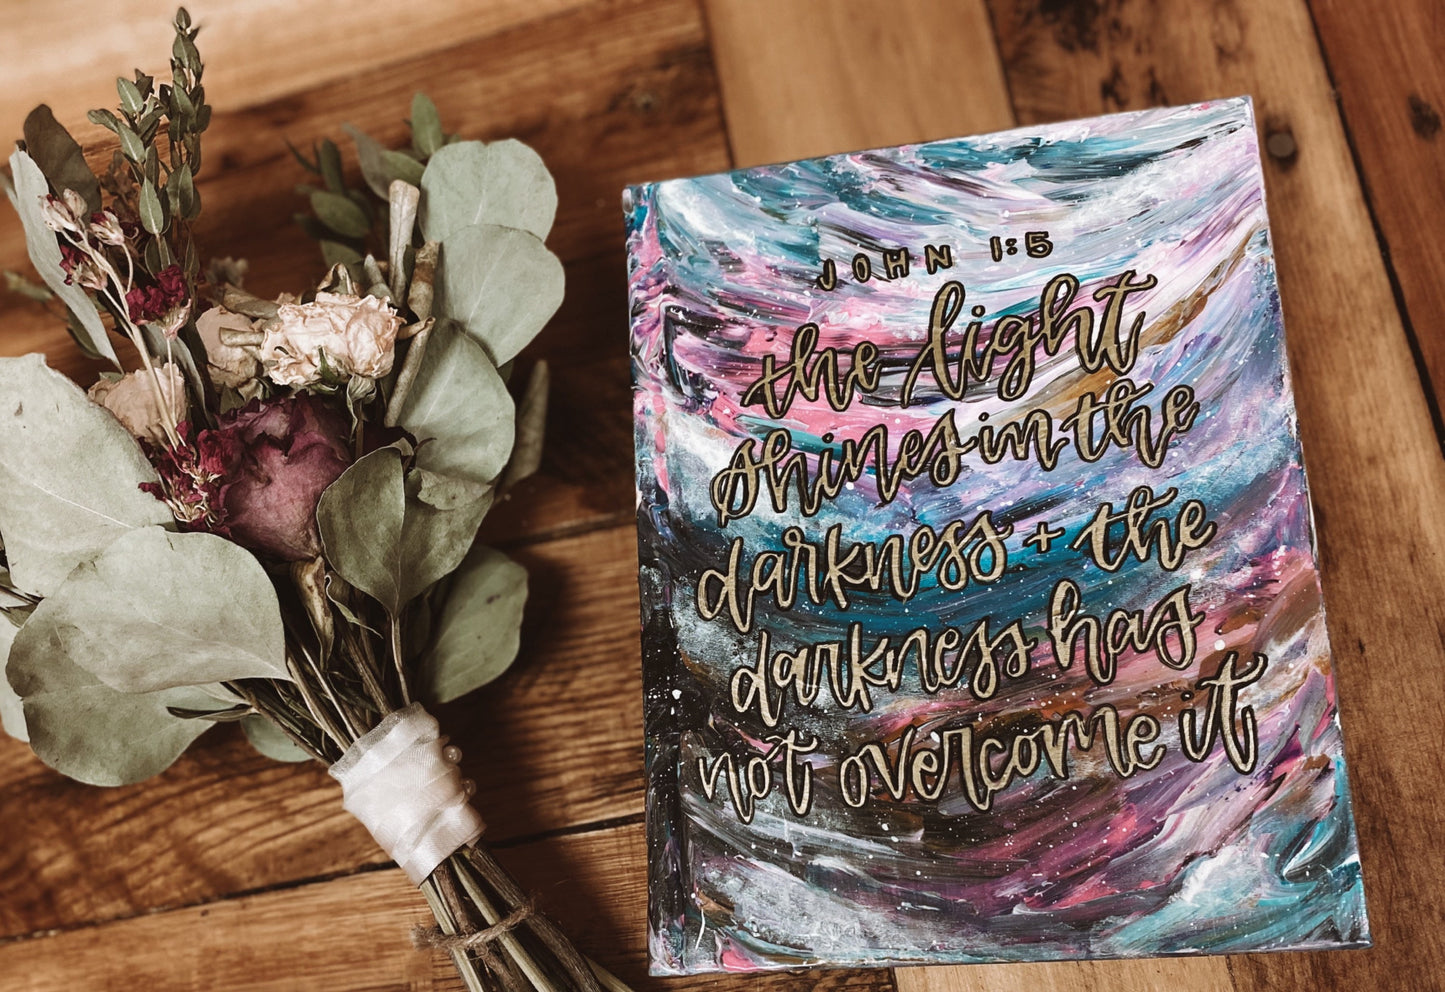 JOHN 1:5
the light
shines in the
darkness + the
darkness has
not overcome it